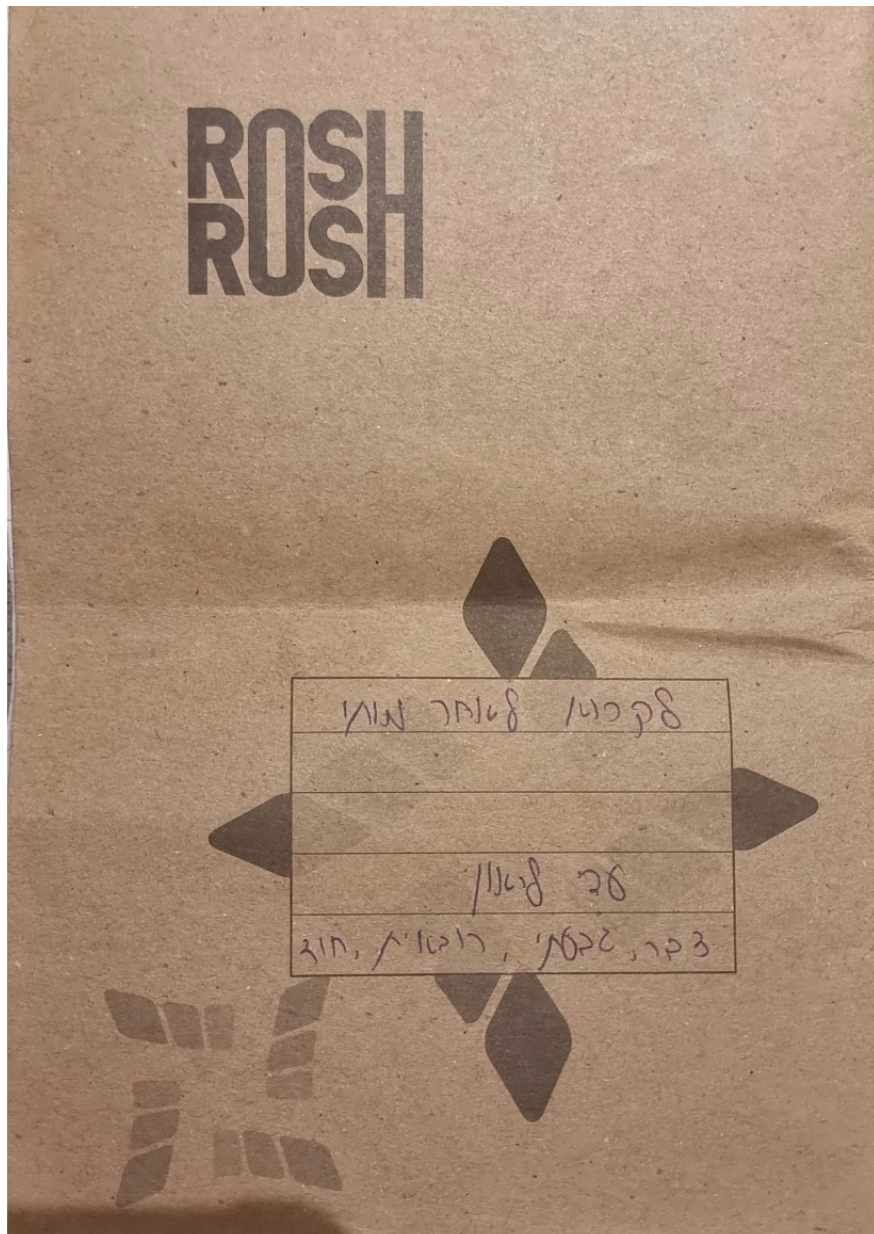 ROSH
ROSH
לקרוא לאחר מותי
עדי ליאון
צבר, גבעתי, רובאית, חוד